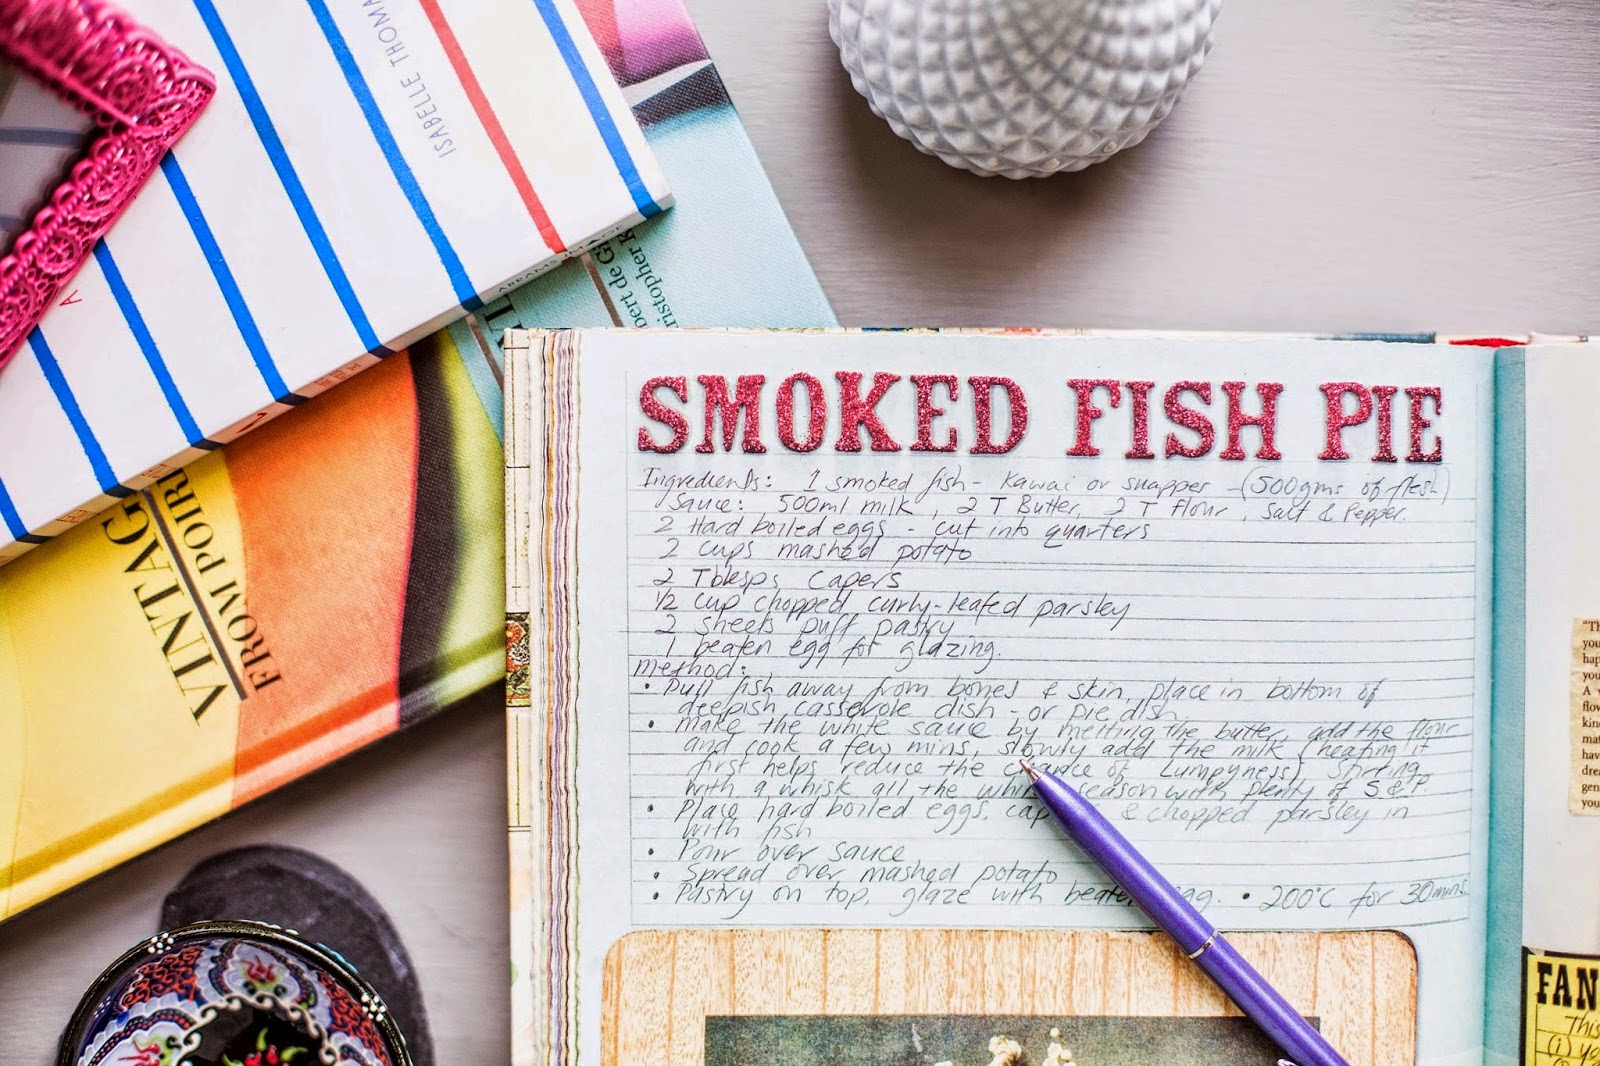 ISABELLE THOMA
A
ABRAMS IMAGE
bert de Gi
ristopher K
VINTAG
FROM POIR
SMOKED FISH PIE
Ingredients: 1 smoked fish - Kawai or snapper - (500gms of flesh)
Sauce: 500ml milk, 2 T Butter, 2 T flour, Salt & Pepper.
2 Hard boiled eggs - cut into quarters
2 cups mashed potato
2 Tblesps Capers
1/2 cup chopped curly-leafed parsley
2 sheets puff pastry
1 beaten egg for glazing.
Method:
• Pull fish away from bones & skin, place in bottom of
deepish casserole dish - or pie dish
• Make the white sauce by melting the butter, add the flour
and cook a few mins, slowly add the milk (heating it
first helps reduce the chance of Lumpyness) stirring
with a whisk all the whi season with plenty of S & P
• Place hard boiled eggs, cap & chopped parsley in
with fish
• Pour over sauce
• Spread over mashed potato
• Pastry on top, glaze with beaten egg. • 200°C for 30mins
"Th
you
hap
you
A
flow
kin
mat
hav
drea
gen
you
FAN
This
(i) yo